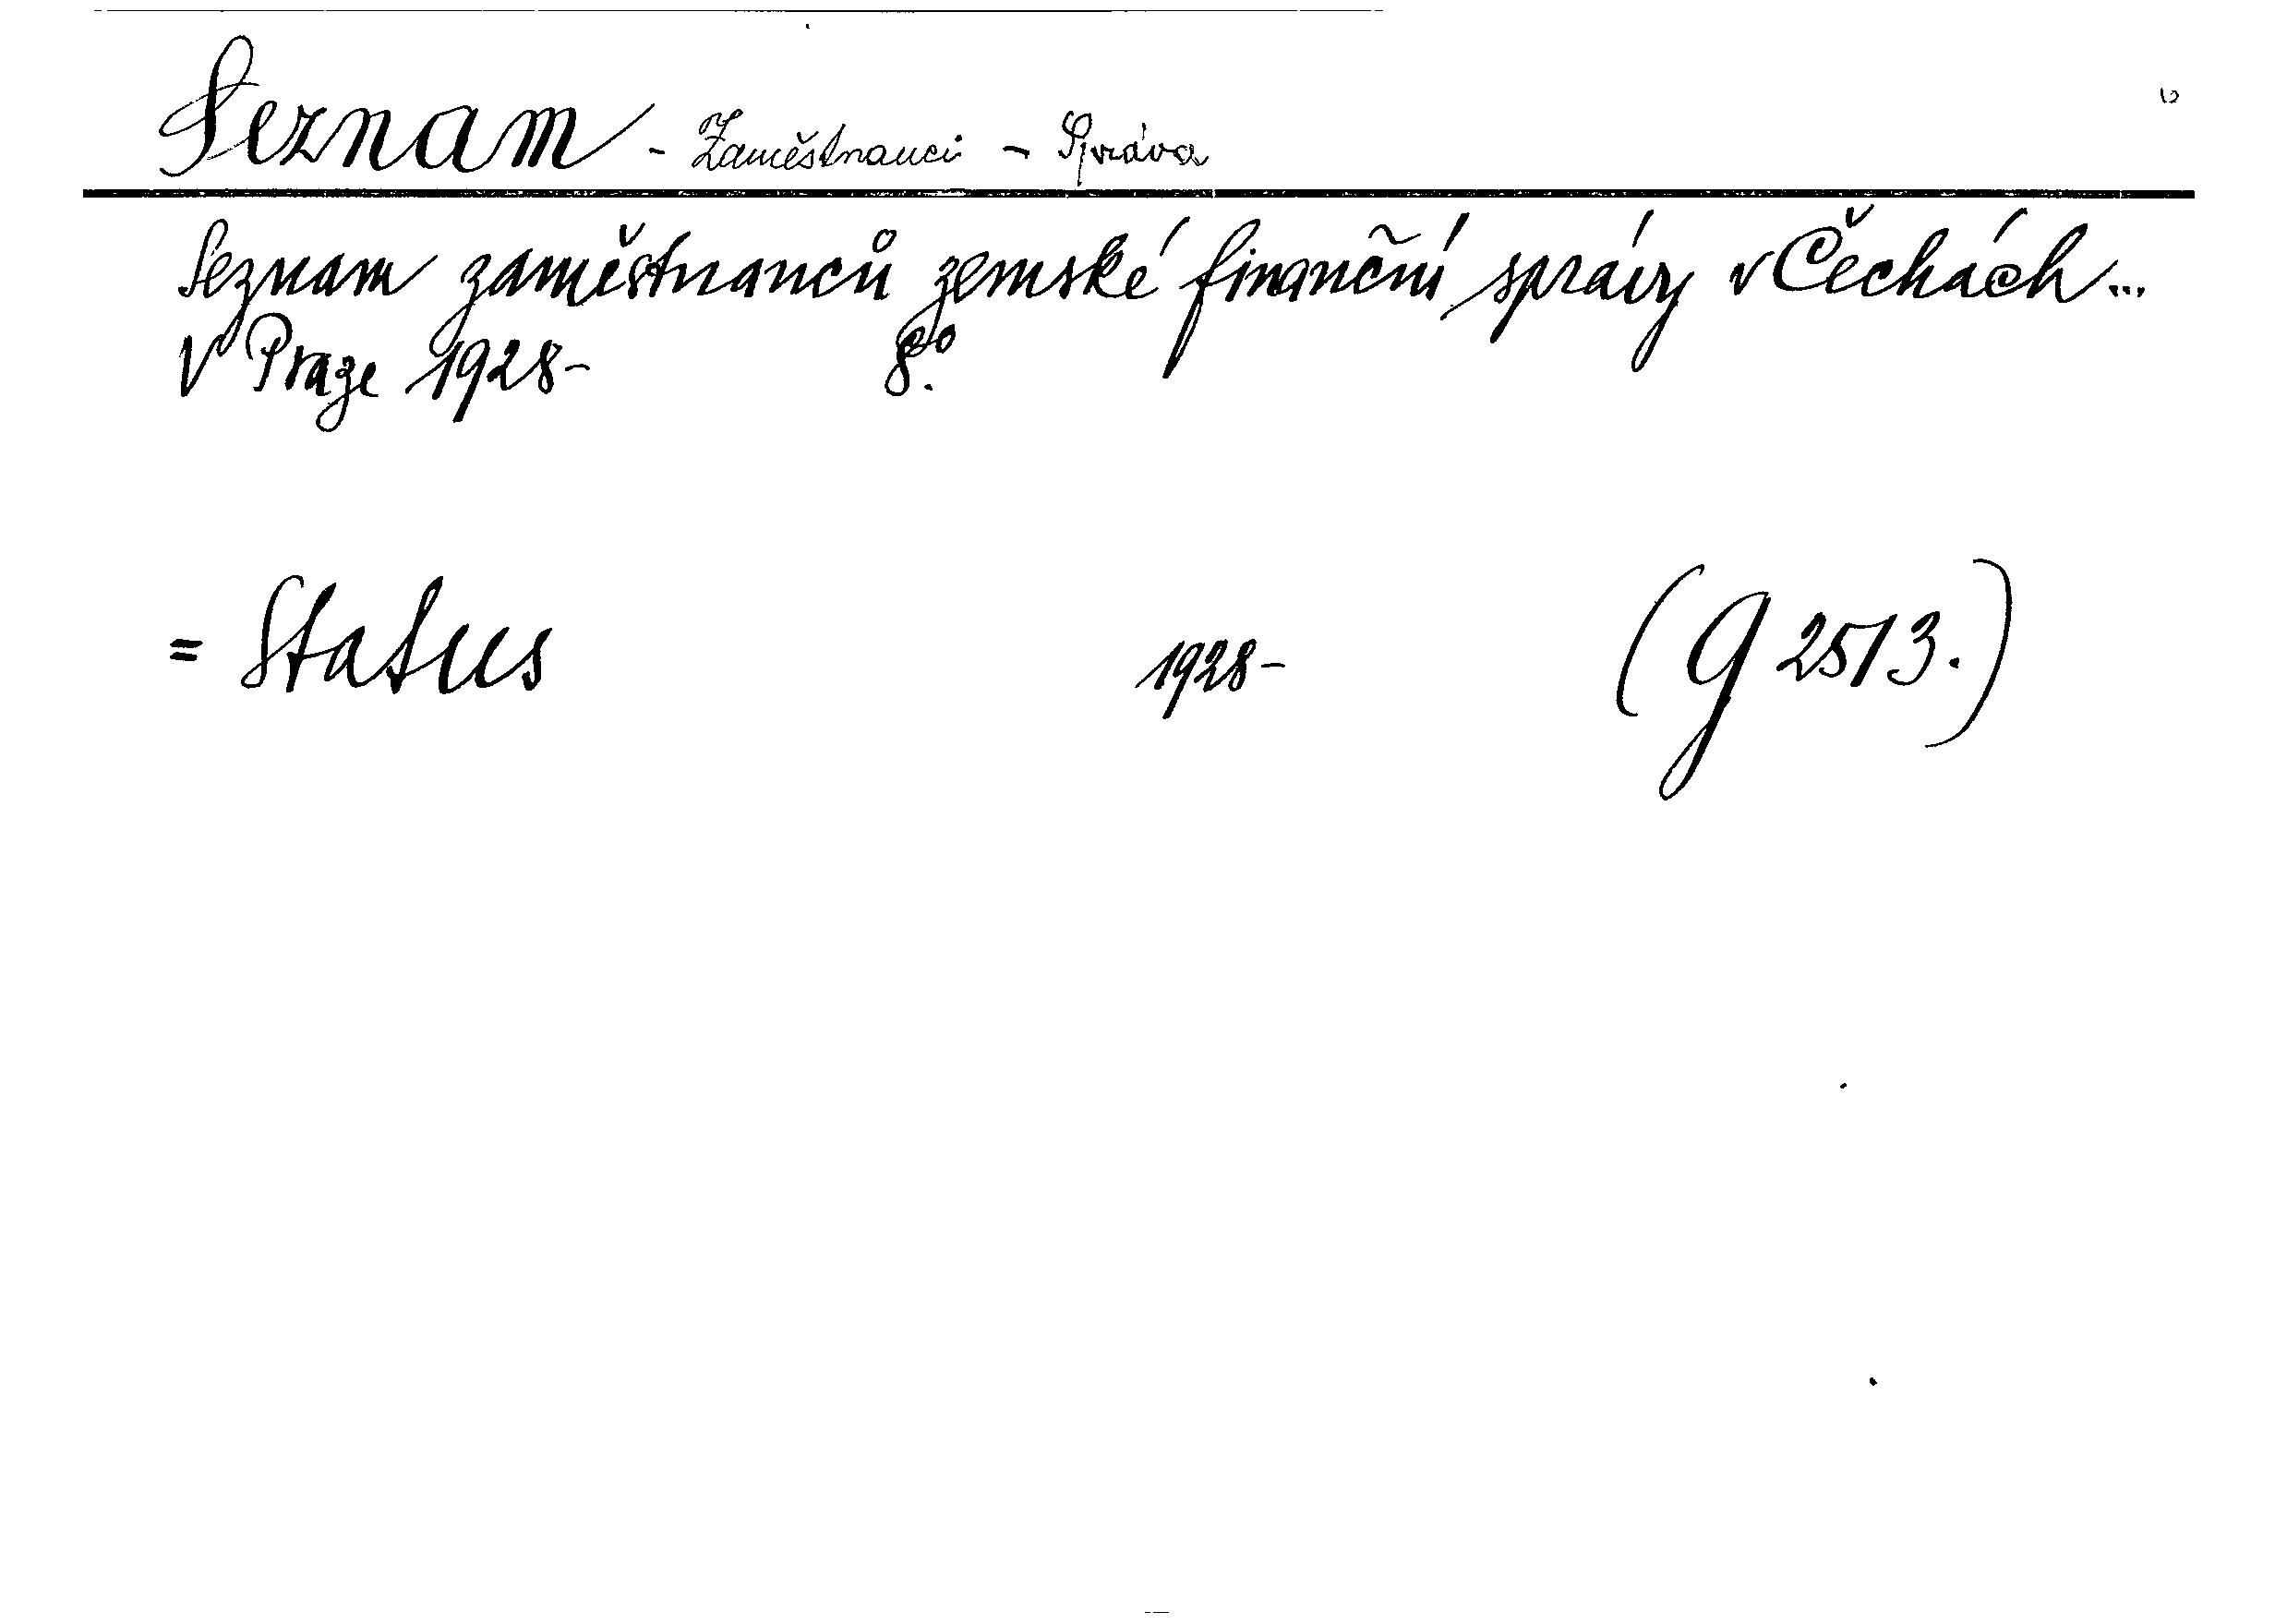 Seznam - Zaměstnanci - Správa
Seznam zaměstnanců zemské finanční správy v Čechách...
V Praze 1928- 8.º
= Status 1928- (g 2513.)